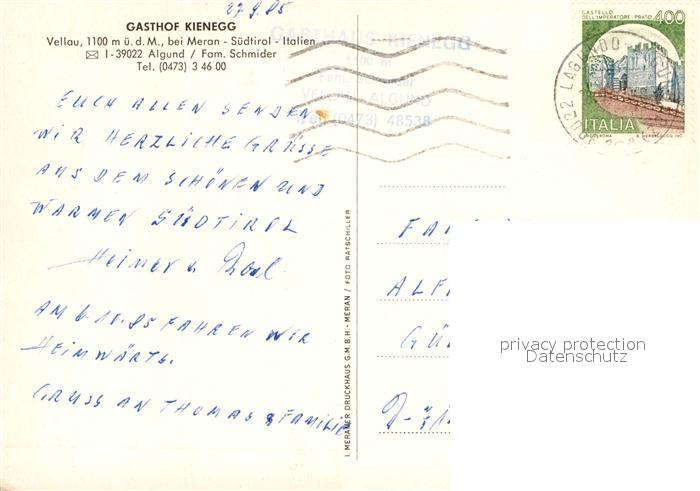 27.9.85
GASTHOF KIENEGG
Vellau, 1100 m ü.d.M., bei Meran - Südtirol - Italien
✉ I-39022 Algund / Fam. Schmider
Tel. (0473) 3 46 00
GASTHAUS KIENEGG
1100 m
Fam. Schmider
VELLAU ALGUND
(0473) 48538
CASTELLO
DELL'IMPERATORE - PRATO
400
ITALIA
39022 LAGUNDO
EUCH ALLEN SENDEN
WIR HERZLICHE GRÜSSE
AUS DEM SCHÖNEN UND
WARMEN SÜDTIROL
Heiner u.
AM 6.10.85 FAHREN WIR
HEIMWÄRTS.
GRUSS AN THOMAS & FAMILIE
I. MERANER DRUCKHAUS G.M.B.H. - MERAN / FOTO RATSCHILLER
FA
ALF
GÜ
D-
privacy protection
Datenschutz